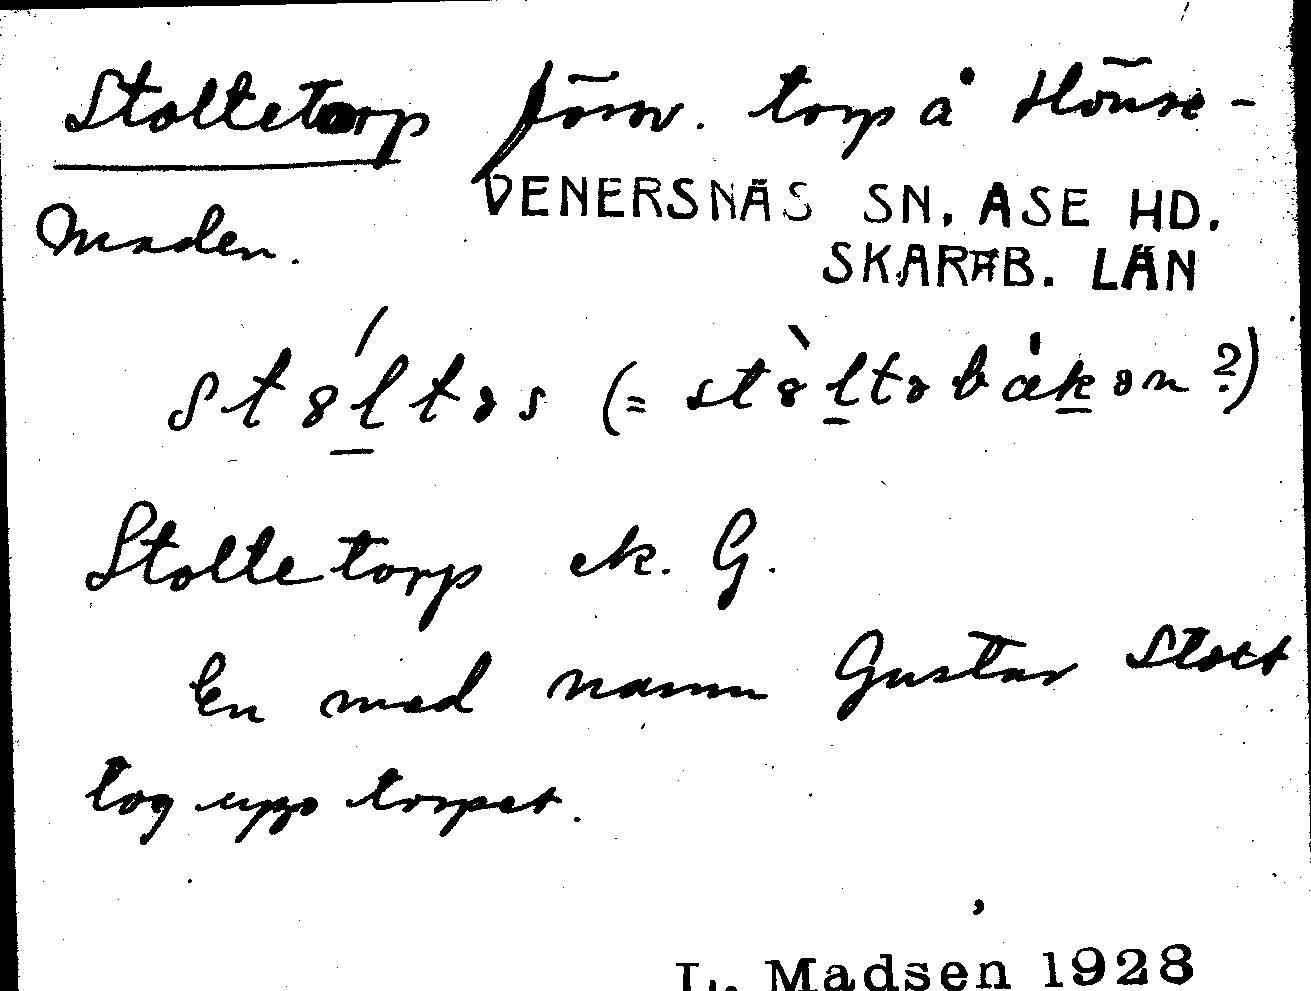 Stoltetorp försv. torp å Hönse-
VENERSNÄS SN, ASE HD.
maden.
SKARAB. LÄN
st8́ltəs (= st8̀ltəbakən?)
Stoltetorp ek. G.
En med namn Gustav Stolt
tog upp torpet.
L. Madsen 1928